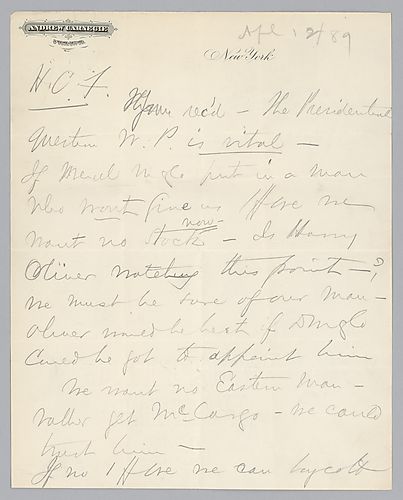 ANDREW CARNEGIE
Apl 12/89
New York
H.C.F.
Yours rec'd – The Presidential
question W. P. is vital –
If put in a man
who wont give us we
now
want no stock – Is Harry
Oliver watching this point – ?
we must be sure of our man –
Oliver would be best if
could be got to appoint him
We want no Eastern man –
rather get McCargo – we could
trust him –
If no we can boycott